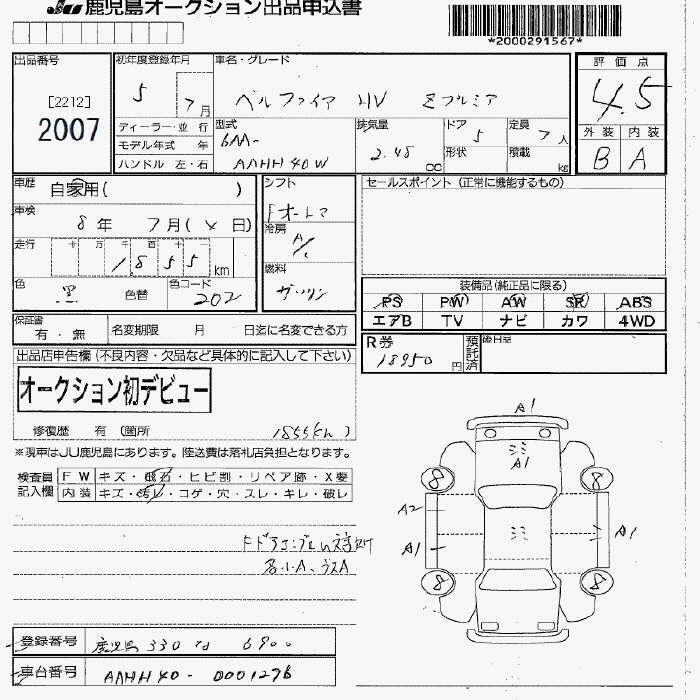 JU 鹿児島オークション出品申込書
*2000291567*
出品番号
[2212]
2007
初年度登録年月
5 7月
ディーラー・並 行
モデル年式 年
ハンドル 左・右
車名・グレード
ベルファイア HV Zプレミア
型式
6AA-
AAHH40W
排気量
2.48 cc
ドア
5
形状
定員
7人
積載
kg
評 価 点
4.5
外 装 内 装
B A
車歴
自家用( )
車検
8年 7月( 日)
走行
十 万 千 百 十
1855 km
色
黒
色替
色コード
202
シフト
Fオートマ
冷房
A/C
燃料
ガソリン
セールスポイント (正常に機能するもの)
装備品(純正品に限る)
PS PW AW SR ABS
エアB TV ナビ カワ 4WD
保証書
有・無
名変期限 月 日迄に名変できる方
R券
18950円
預託済
後日
出品店申告欄(不良内容・欠品など具体的に記入して下さい)
オークション初デビュー
修復歴 有 (箇所 1855km )
※現車はJU鹿児島にあります。陸送費は落札店負担となります。
検査員記入欄
FW キズ・飛石・ヒビ割・リペア跡・X要
内装 キズ・汚レ・コゲ・穴・スレ・キレ・破レ
A1
A1
8 8
A2
A1
A1
8 8
各小A、
登録番号
鹿児島 330 6900
車台番号
AAHH40-0001276